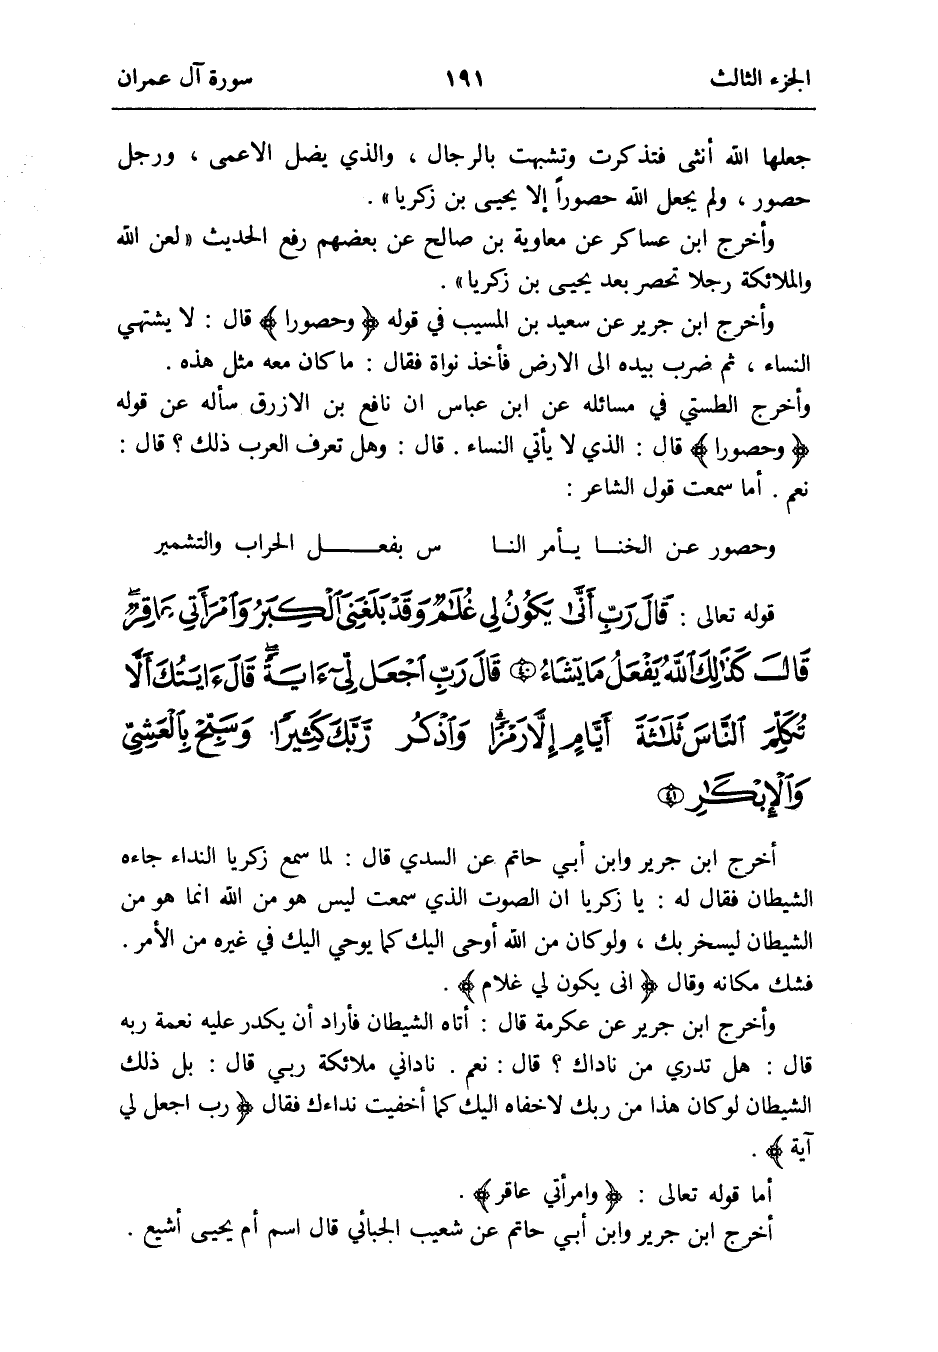 الجزء الثالث ١٩١ سورة آل عمران
جعلها الله أنثى فتذكرت وتشبهت بالرجال ، والذي يضل الاعمى ، ورجل
حصور ، ولم يجعل الله حصوراً إلا يحيى بن زكريا» .
وأخرج ابن عساكر عن معاوية بن صالح عن بعضهم رفع الحديث «لعن الله
والملائكة رجلا تحصر بعد يحيى بن زكريا» .
وأخرج ابن جرير عن سعيد بن المسيب في قوله ﴿ وحصورا ﴾ قال : لا يشتهي
النساء ، ثم ضرب بيده الى الارض فأخذ نواة فقال : ما كان معه مثل هذه .
وأخرج الطستي في مسائله عن ابن عباس ان نافع بن الازرق سأله عن قوله
﴿ وحصورا ﴾ قال : الذي لا يأتي النساء . قال : وهل تعرف العرب ذلك ؟ قال :
نعم . أما سمعت قول الشاعر :
وحصور عن الخنا يأمر النا س بفعل الحراب والتشمير
قوله تعالى : قَالَ رَبِّ أَنَّىٰ يَكُونُ لِي غُلَٰمٌ وَقَدْ بَلَغَنِيَ ٱلْكِبَرُ وَٱمْرَأَتِي عَاقِرٌۖ
قَالَ كَذَٰلِكَ ٱللَّهُ يَفْعَلُ مَا يَشَآءُ ﴿٤٠﴾ قَالَ رَبِّ ٱجْعَل لِّيٓ ءَايَةًۖ قَالَ ءَايَتُكَ أَلَّا
تُكَلِّمَ ٱلنَّاسَ ثَلَٰثَةَ أَيَّامٍ إِلَّا رَمْزًاۗ وَٱذْكُر رَّبَّكَ كَثِيرًا وَسَبِّحْ بِٱلْعَشِيِّ
وَٱلْإِبْكَٰرِ ﴿٤١﴾
أخرج ابن جرير وابن أبي حاتم عن السدي قال : لما سمع زكريا النداء جاءه
الشيطان فقال له : يا زكريا ان الصوت الذي سمعت ليس هو من الله انما هو من
الشيطان ليسخر بك ، ولو كان من الله أوحى اليك كما يوحي اليك في غيره من الأمر .
فشك مكانه وقال ﴿ انى يكون لي غلام ﴾ .
وأخرج ابن جرير عن عكرمة قال : أتاه الشيطان فأراد أن يكدر عليه نعمة ربه
قال : هل تدري من ناداك ؟ قال : نعم . ناداني ملائكة ربي قال : بل ذلك
الشيطان لو كان هذا من ربك لاخفاه اليك كما أخفيت نداءك فقال ﴿ رب اجعل لي
آية ﴾ .
أما قوله تعالى : ﴿ وامرأتي عاقر ﴾ .
أخرج ابن جرير وابن أبي حاتم عن شعيب الجبائي قال اسم أم يحيى أشيع .